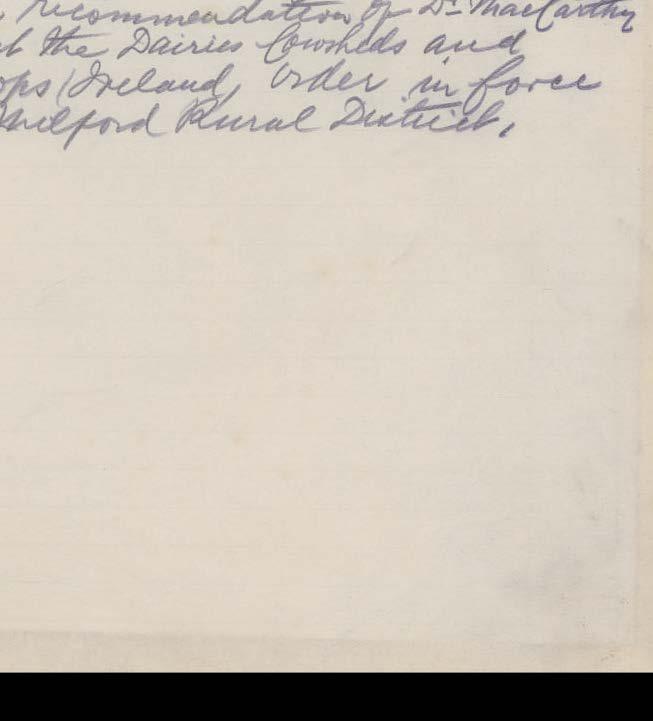 recommendation of Dr MacCarthy
the Dairies Cowsheds and
ops (Ireland, Order in force
Milford Rural District,